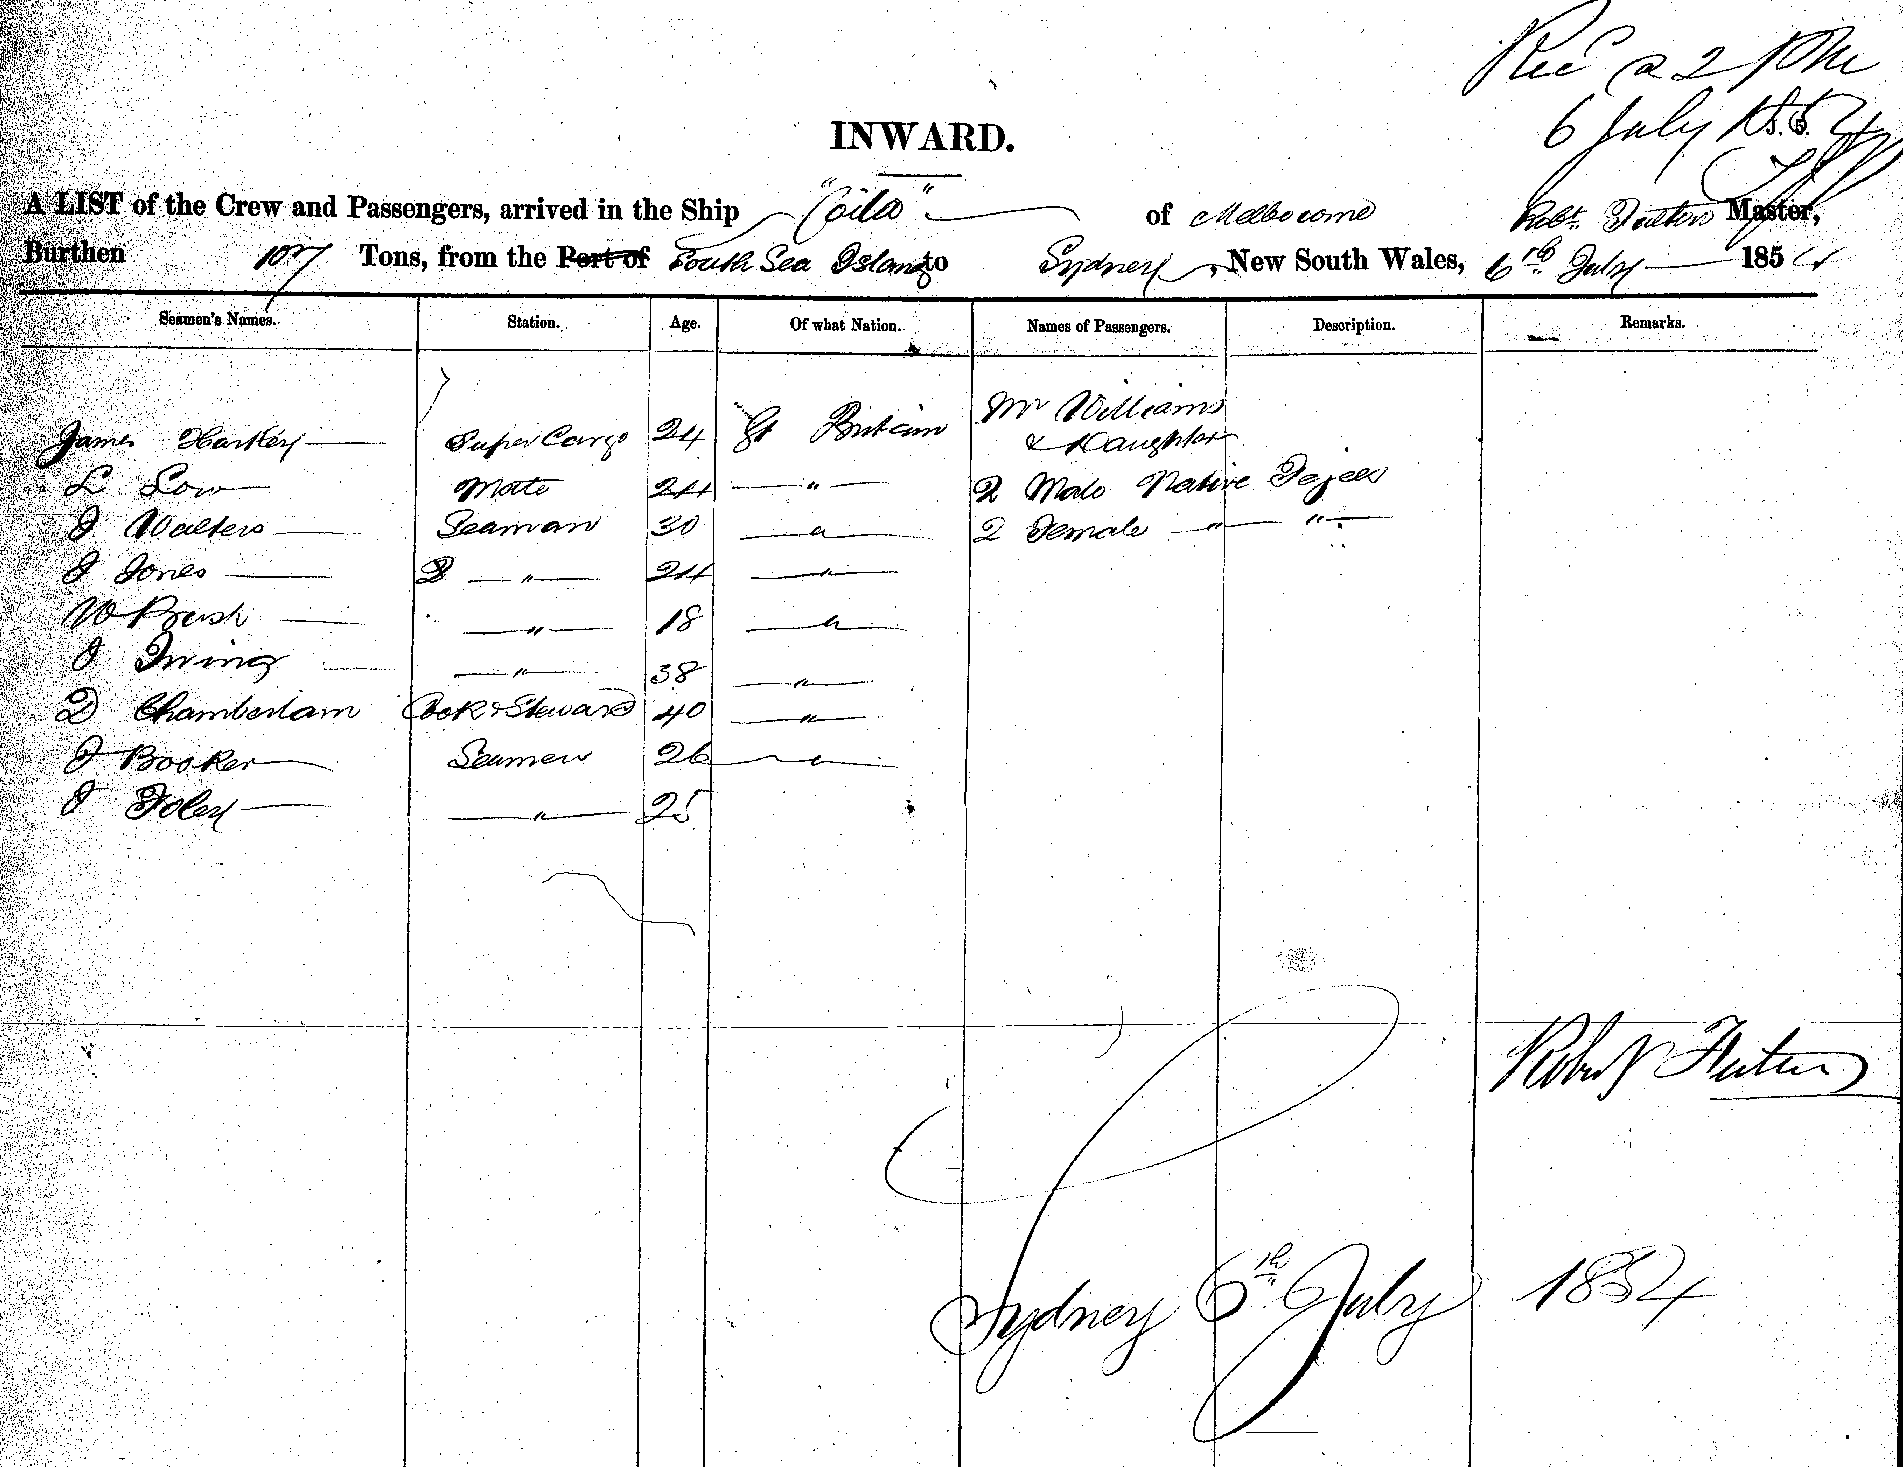 Recd @ 2 PM
6 July 1854
INWARD.
A LIST of the Crew and Passengers, arrived in the Ship "Coila" of Melbourne Robt. Master,
Burthen 107 Tons, from the Port of South Sea Islands to Sydney, New South Wales, 6th July 1854
Seamen's Names. Station. Age. Of what Nation. Names of Passengers. Description. Remarks.
Mr Williams
James Super Cargo 24 Gt Britain & Daughter
L Low Mate 24 — " — 2 Male Native Fejees
J Walters Seaman 30 — " — 2 Female — " — " —
J Jones D — " — 24 — " —
W Brush — " — 18 — " —
J Irving — " — 38 — " —
D Chamberlain Cook & Steward 40 — " —
J Booker Seamen 26 — " —
J Foley — " — 25
Robert
Sydney 6th July 1854